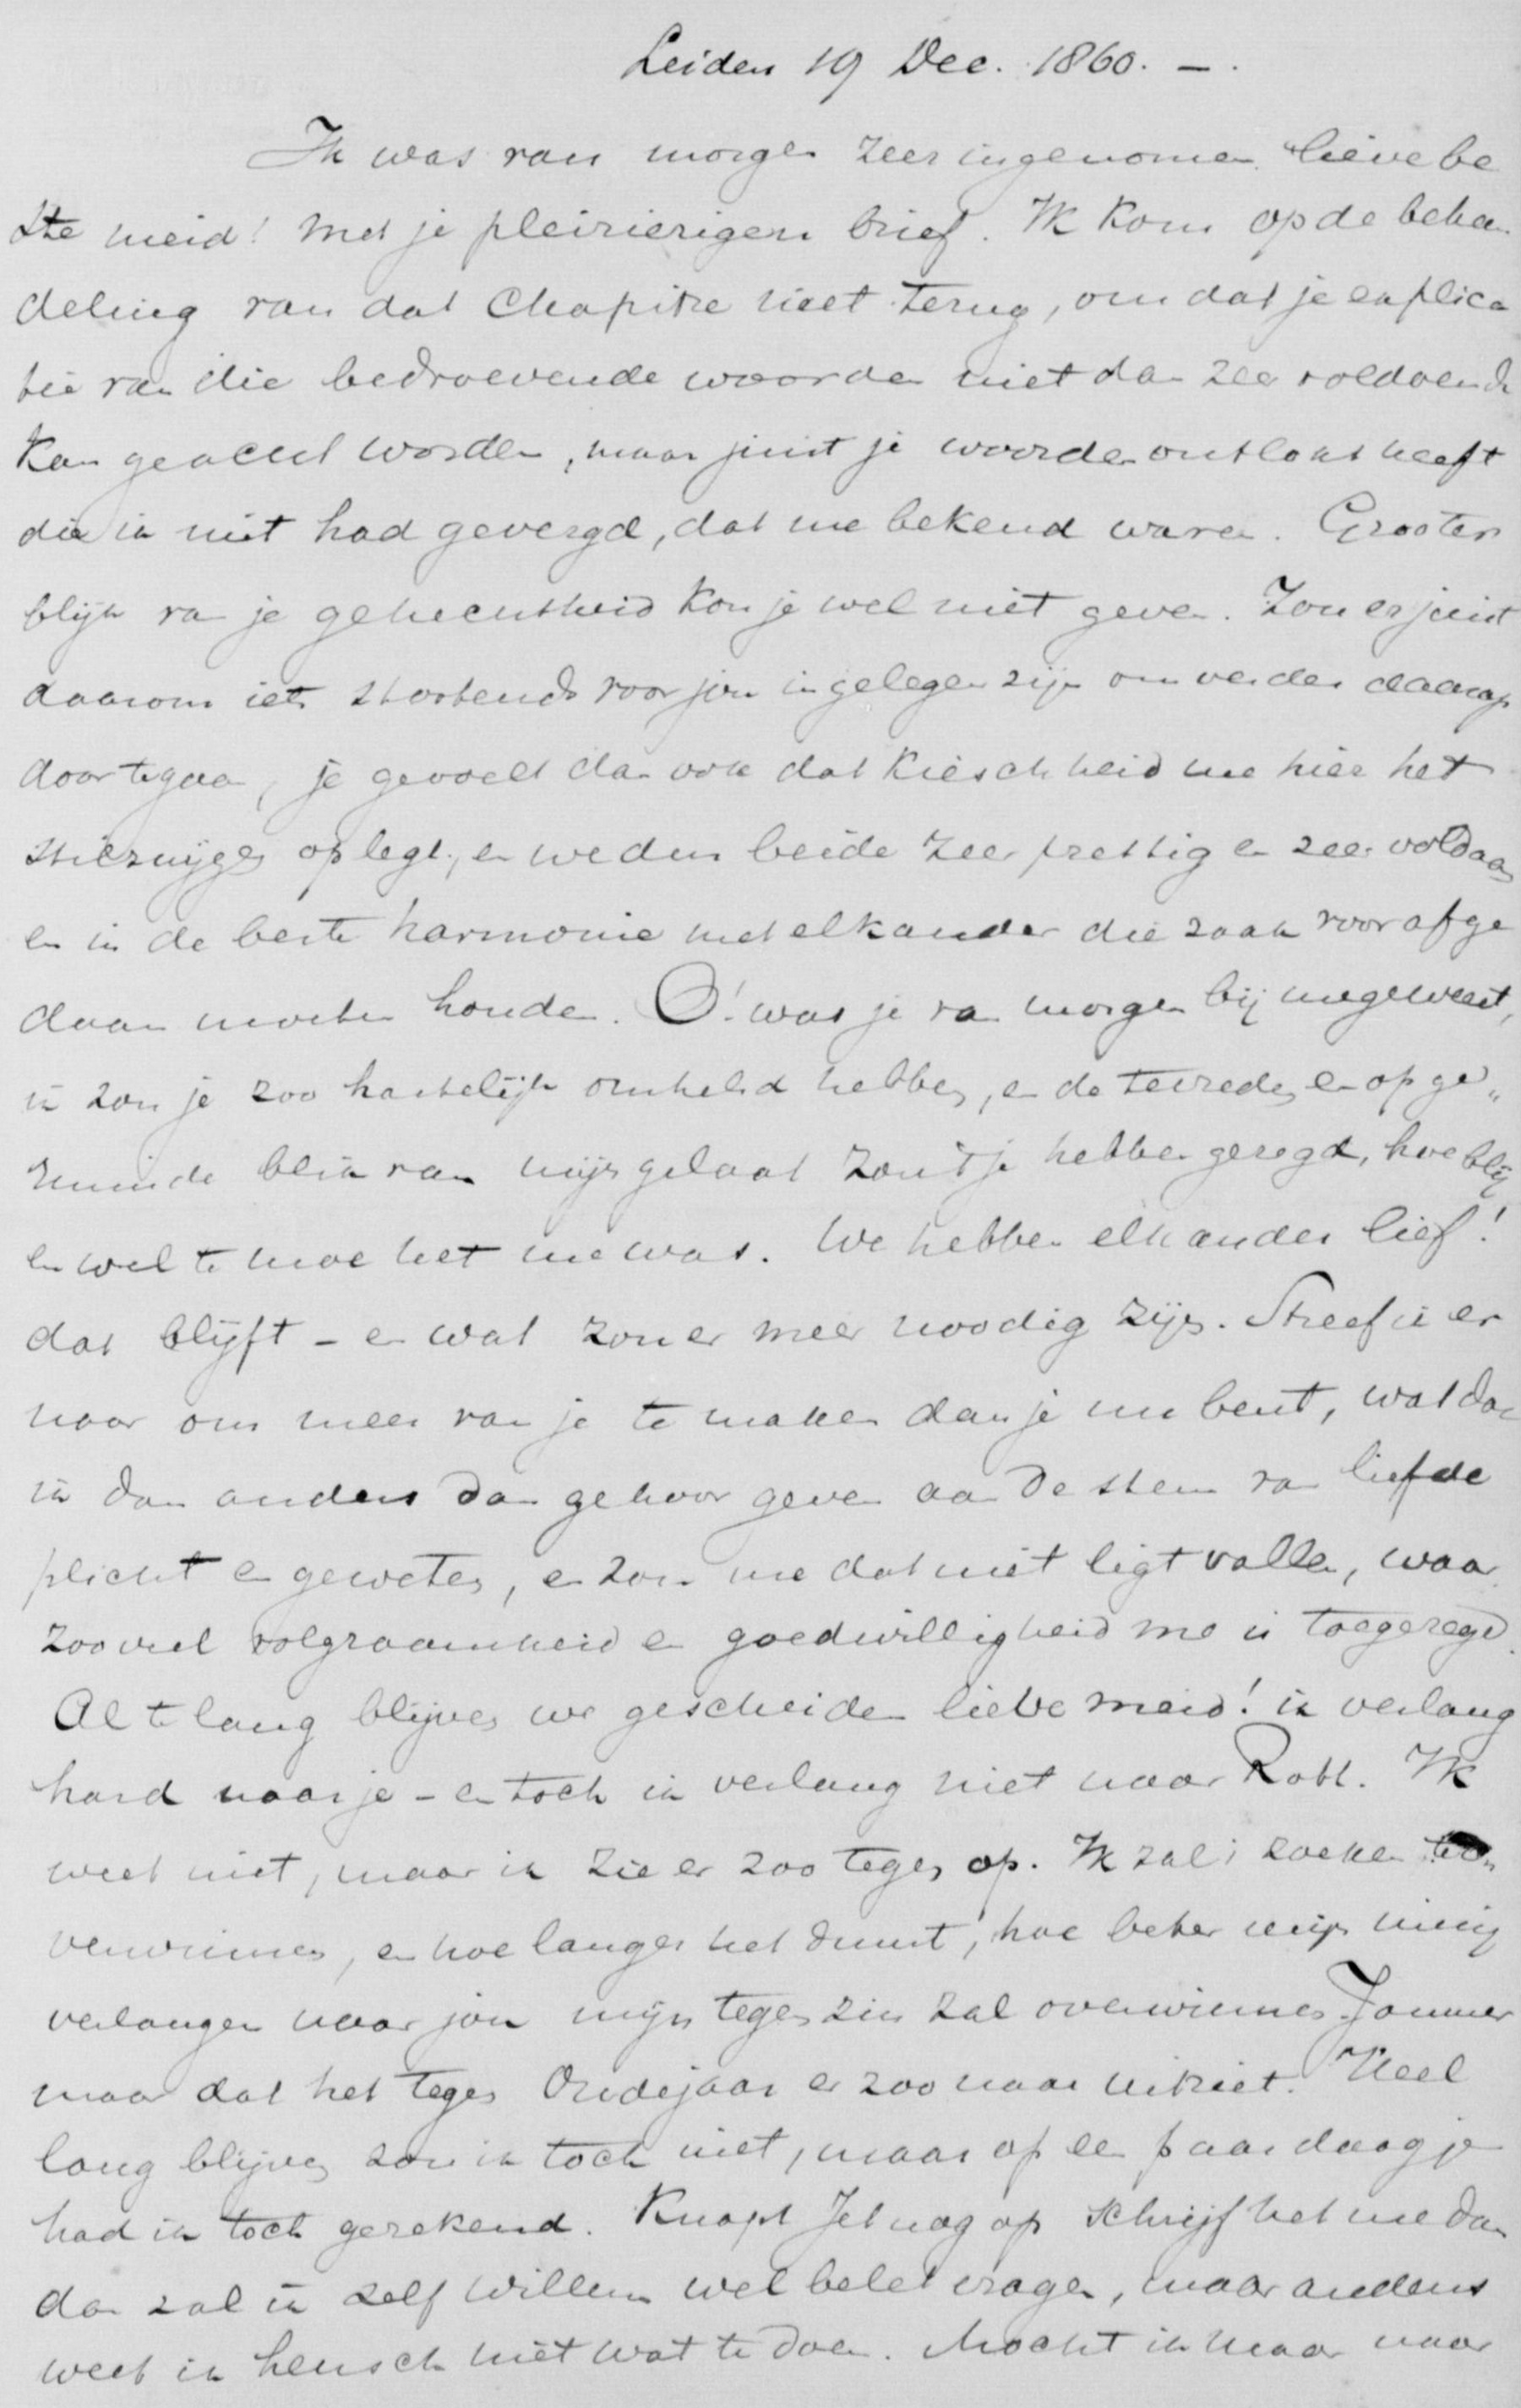 Leiden 19 Dec. 1860. —.
Ik was van morgen zeer ingenomen lieve be
ste meid! met je pleizierigen brief. Ik kom op de behan
deling van dat Chapitre niet terug, omdat je explica
tie van die bedroevende woorden niet dan zeer voldoende
kan geacht worden, maar juist je woorden ontlokt heeft
die ik niet had gevergd, dat me bekend waren. Grooter
blijk van je gehechtheid kon je wel niet geven. Zou er juist
daarom iets stootends voor jou in gelegen zijn om verder daarop
door te gaan, je gevoelt dan ook dat kieschheid me hier het
stilzwijgen oplegt, en we dus beide zeer prettig en zeer voldaan
en in de beste harmonie met elkander die zaak voor afge
daan moeten houden. O! was je van morgen bij me geweest,
ik zou je zoo hartelijk omhelsd hebben, en de tevreden en opge„
ruimde blik van mijn gelaat zou 't je hebben gezegd, hoe blij
en wel te moe het me was. We hebben elkander lief!
dat blijft – en wat zou er meer noodig zijn. Streef ik er
naar om meer van je te maken dan je nu bent, wat doe
ik dan anders dan gehoor geven aan de stem van liefde
plicht en geweten, en zou me dat niet ligt vallen, waar
zooveel volgzaamheid en goedwilligheid me is toegezegd.
Al te lang blijven we gescheiden lieve meid! ik verlang
hard naar je – en toch ik verlang niet naar Rott. Ik
weet niet, maar ik zie er zoo tegen op. Ik zal 't zoeken te
verwinnen, en hoe langer het duurt, hoe beter mijn innig
verlangen naar jou mijn tegenzin zal overwinnen. Jammer
maar dat het tegen Oudejaar er zoo naar uitziet. Heel
lang blijven zou ik toch niet, maar op een paar daagje
had ik toch gerekend. Knapt Jet nog op schrijf het me dan
dan zal ik zelf Willem wel belet vragen, maar anders
weet ik heusch niet wat te doen. Mocht ik maar naar